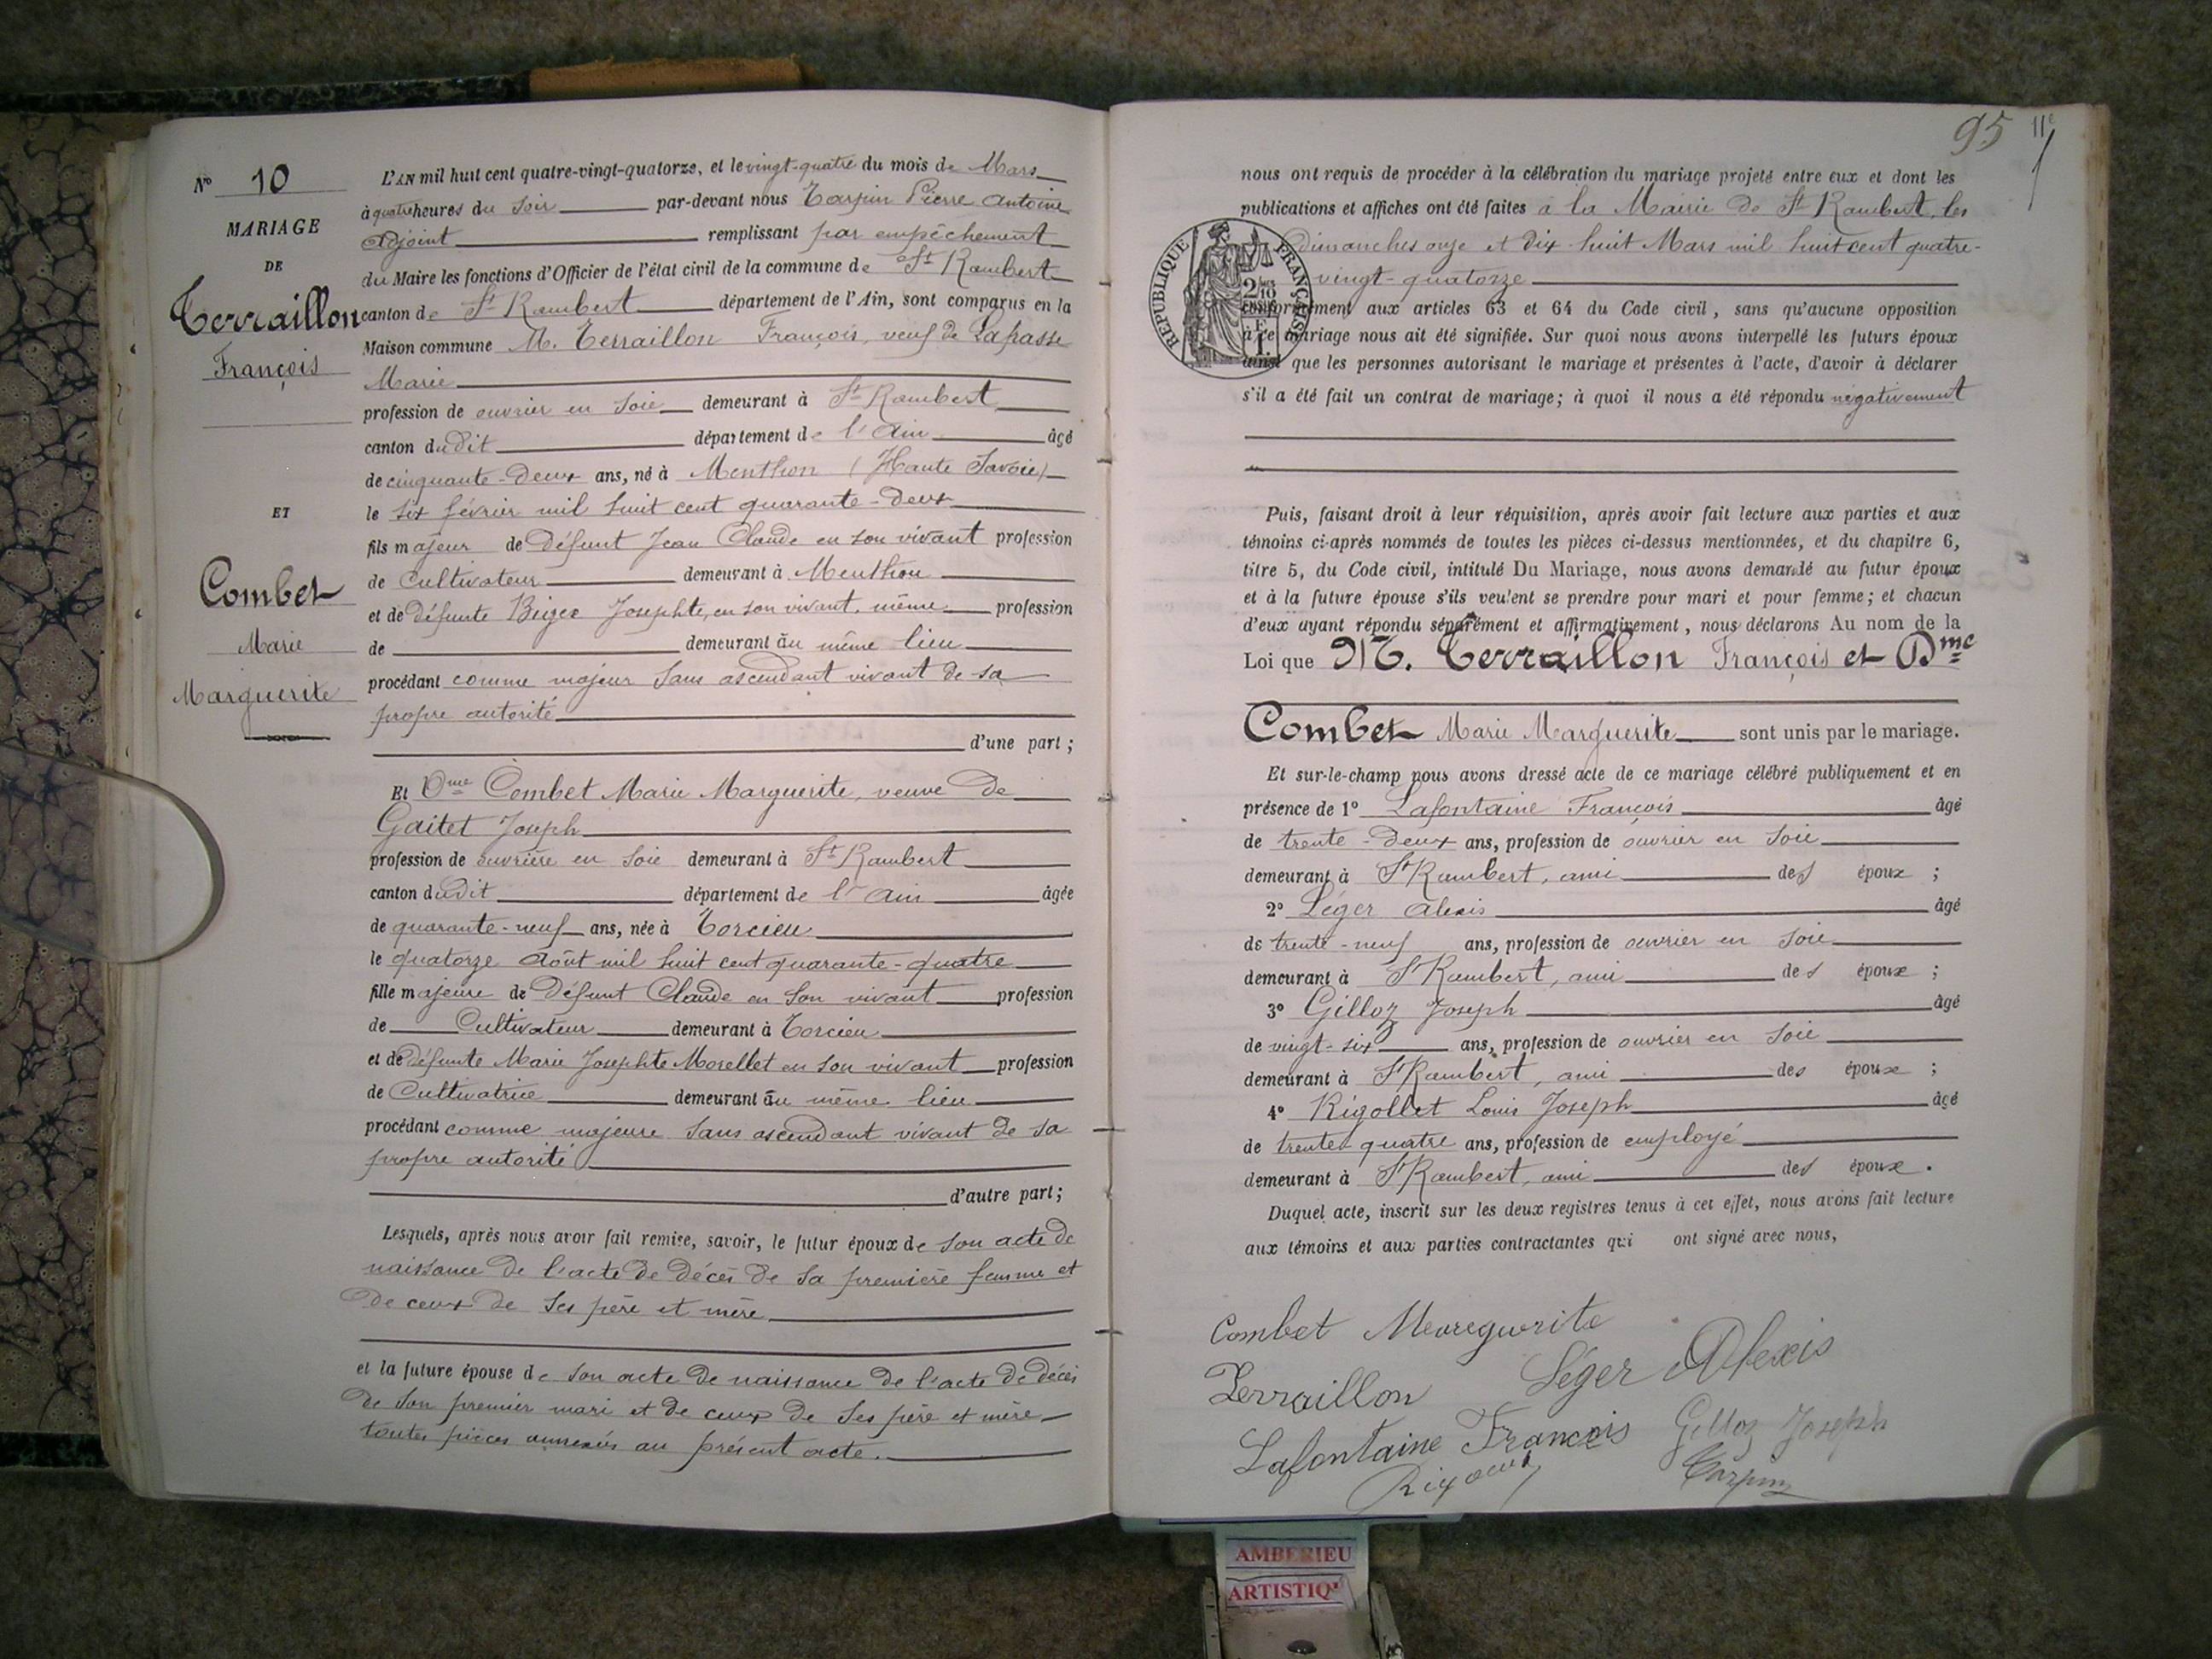 N° 10
MARIAGE
DE
Terraillon
François
ET
Combet
Marie
Marguerite
L'AN mil huit cent quatre-vingt-quatorze, et le vingt-quatre du mois de Mars
à quatre heures du soir par-devant nous Tarpin Pierre Antoine
Adjoint remplissant par empêchement
du Maire les fonctions d'Officier de l'état civil de la commune de St Rambert
canton de St Rambert département de l'Ain, sont comparus en la
Maison commune M. Terraillon François, veuf de Lapasse
Marie
profession de ouvrier en soie demeurant à St Rambert
canton dudit département de l'Ain âgé
de cinquante-deux ans, né à Menthon (Haute Savoie)
le six février mil huit cent quarante-deux
fils majeur de défunt Jean Claude en son vivant profession
de Cultivateur demeurant à Menthon
et de défunte Josephte, en son vivant, même profession
de demeurant au même lieu
procédant comme majeur sans ascendant vivant de sa
propre autorité
d'une part ;
Et Dme Combet Marie Marguerite, veuve de
Gaitet Joseph
profession de ouvrière en soie demeurant à St Rambert
canton dudit département de l'Ain âgée
de quarante-neuf ans, née à Torcieu
le quatorze Août mil huit cent quarante-quatre
fille majeure de défunt Claude en son vivant profession
de Cultivateur demeurant à Torcieu
et de défunte Marie Josephte Morellet en son vivant profession
de Cultivatrice demeurant au même lieu
procédant comme majeure sans ascendant vivant de sa
propre autorité
d'autre part ;
Lesquels, après nous avoir fait remise, savoir, le futur époux de son acte de
naissance de l'acte de décès de sa première femme et
de ceux de ses père et mère
et la future épouse de son acte de naissance de l'acte de décès
de son premier mari et de ceux de ses père et mère
toutes pièces annexées au présent acte.
95
11e
nous ont requis de procéder à la célébration du mariage projeté entre eux et dont les
publications et affiches ont été faites à la Mairie de St Rambert, les
dimanches onze et dix-huit Mars mil huit cent quatre-
vingt-quatorze
REPUBLIQUE FRANÇAISE
conformément aux articles 63 et 64 du Code civil, sans qu'aucune opposition
à ce mariage nous ait été signifiée. Sur quoi nous avons interpellé les futurs époux
ainsi que les personnes autorisant le mariage et présentes à l'acte, d'avoir à déclarer
s'il a été fait un contrat de mariage; à quoi il nous a été répondu négativement
Puis, faisant droit à leur réquisition, après avoir fait lecture aux parties et aux
témoins ci-après nommés de toutes les pièces ci-dessus mentionnées, et du chapitre 6,
titre 5, du Code civil, intitulé Du Mariage, nous avons demandé au futur époux
et à la future épouse s'ils veulent se prendre pour mari et pour femme; et chacun
d'eux ayant répondu séparément et affirmativement, nous déclarons Au nom de la
Loi que M. Terraillon François et Dme
Combet Marie Marguerite sont unis par le mariage.
Et sur-le-champ nous avons dressé acte de ce mariage célébré publiquement et en
présence de 1° Lafontaine François âgé
de trente-deux ans, profession de ouvrier en soie
demeurant à St Rambert, ami des époux ;
2° Léger Alexis âgé
de trente-neuf ans, profession de ouvrier en soie
demeurant à St Rambert, ami des époux ;
3° Gilloz Joseph âgé
de vingt-six ans, profession de ouvrier en soie
demeurant à St Rambert, ami des époux ;
4° Rigollet Louis Joseph âgé
de trente-quatre ans, profession de employé
demeurant à St Rambert, ami des époux.
Duquel acte, inscrit sur les deux registres tenus à cet effet, nous avons fait lecture
aux témoins et aux parties contractantes qui ont signé avec nous,
Combet Marguerite
Terraillon Léger Alexis
Lafontaine François Gilloz Joseph
Tarpin
AMBERIEU
ARTISTIQ